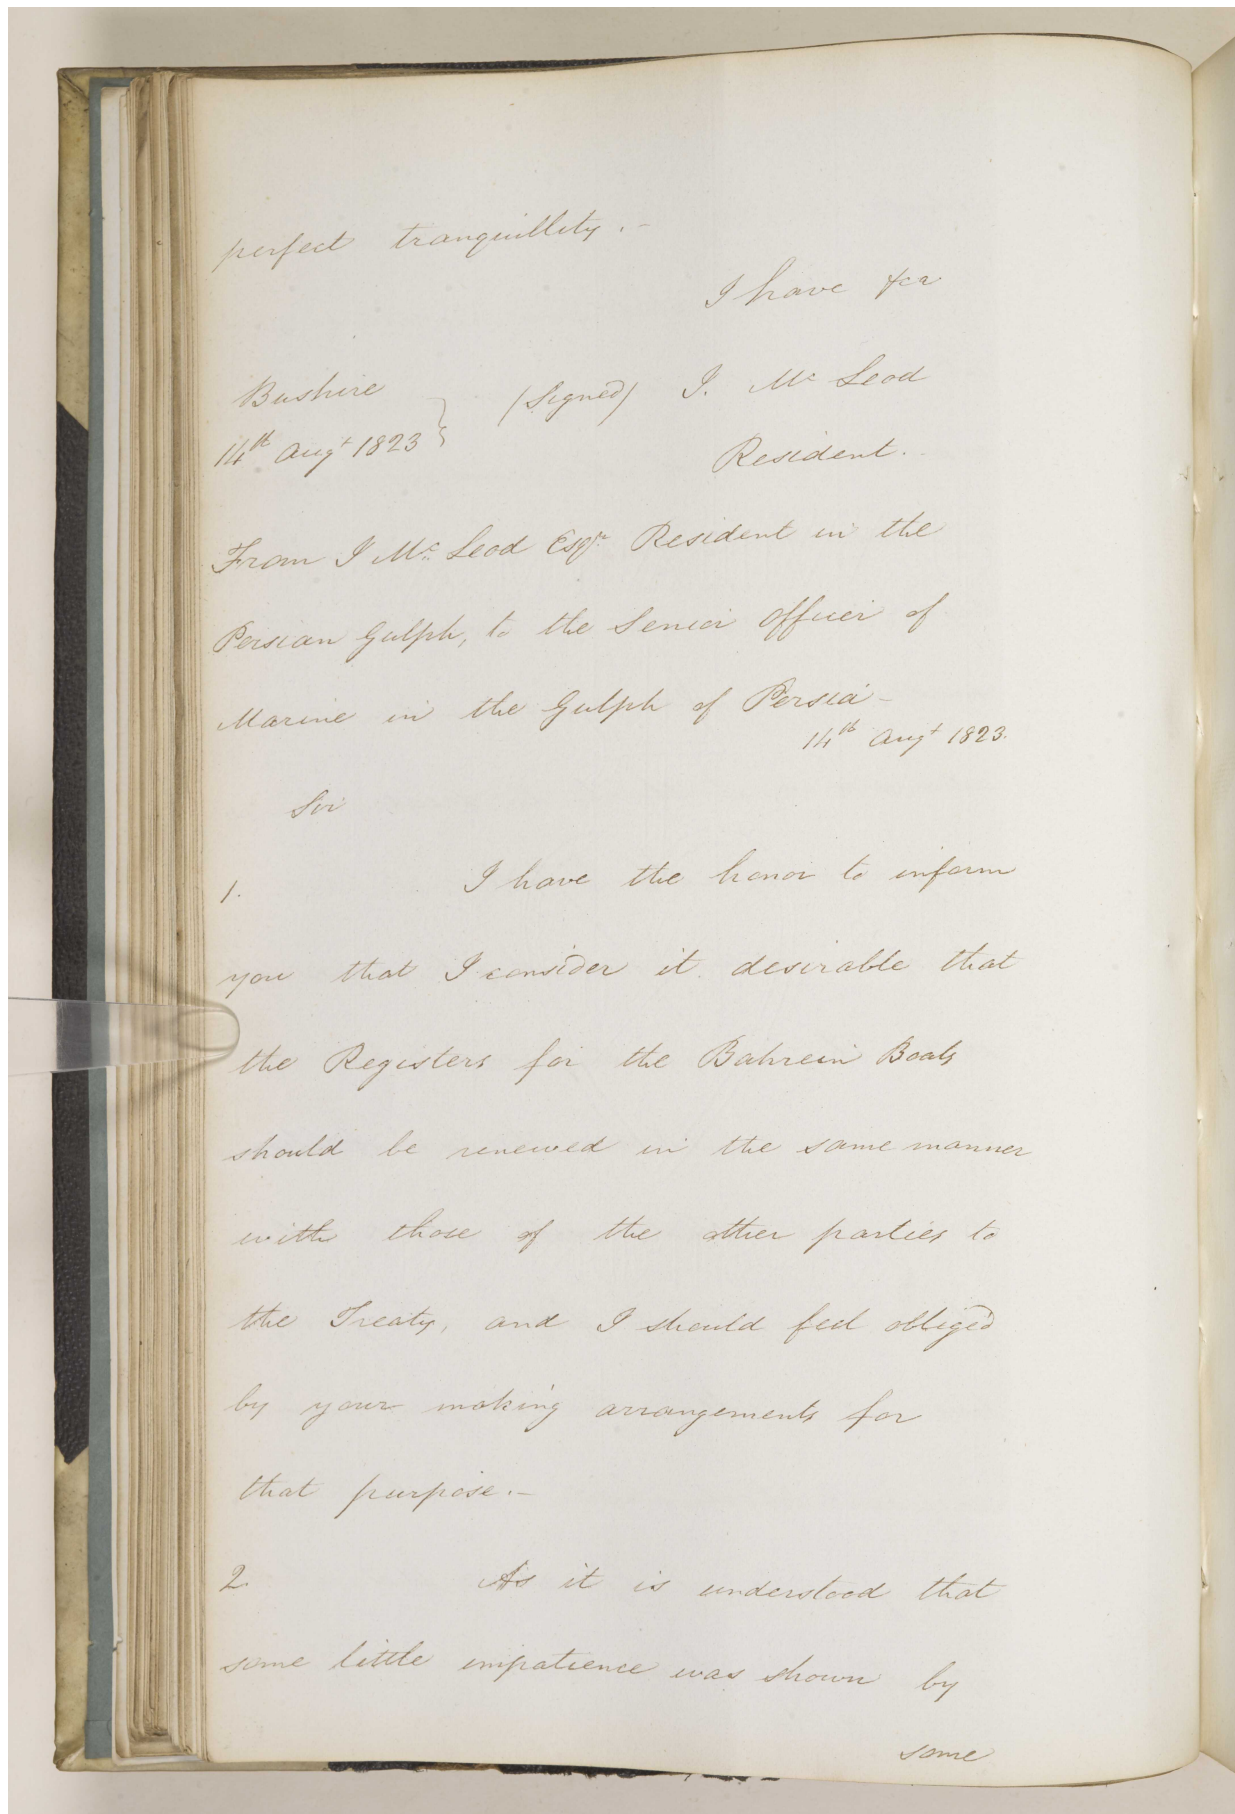 perfect tranquillity.-
I have &ca
Bushire (Signed) J. Mc Leod
14th Augt 1823 Resident.
From J Mc Leod Esqr Resident in the
Persian Gulph, to the Senior Officer of
Marine in the Gulph of Persia-
14th Augt 1823.
Sir
1. I have the honor to inform
you that I consider it desirable that
the Registers for the Bahrein Boats
should be renewed in the same manner
with those of the other parties to
the Treaty, and I should feel obliged
by your making arrangements for
that purpose.-
2. As it is understood that
some little impatience was shown by
some